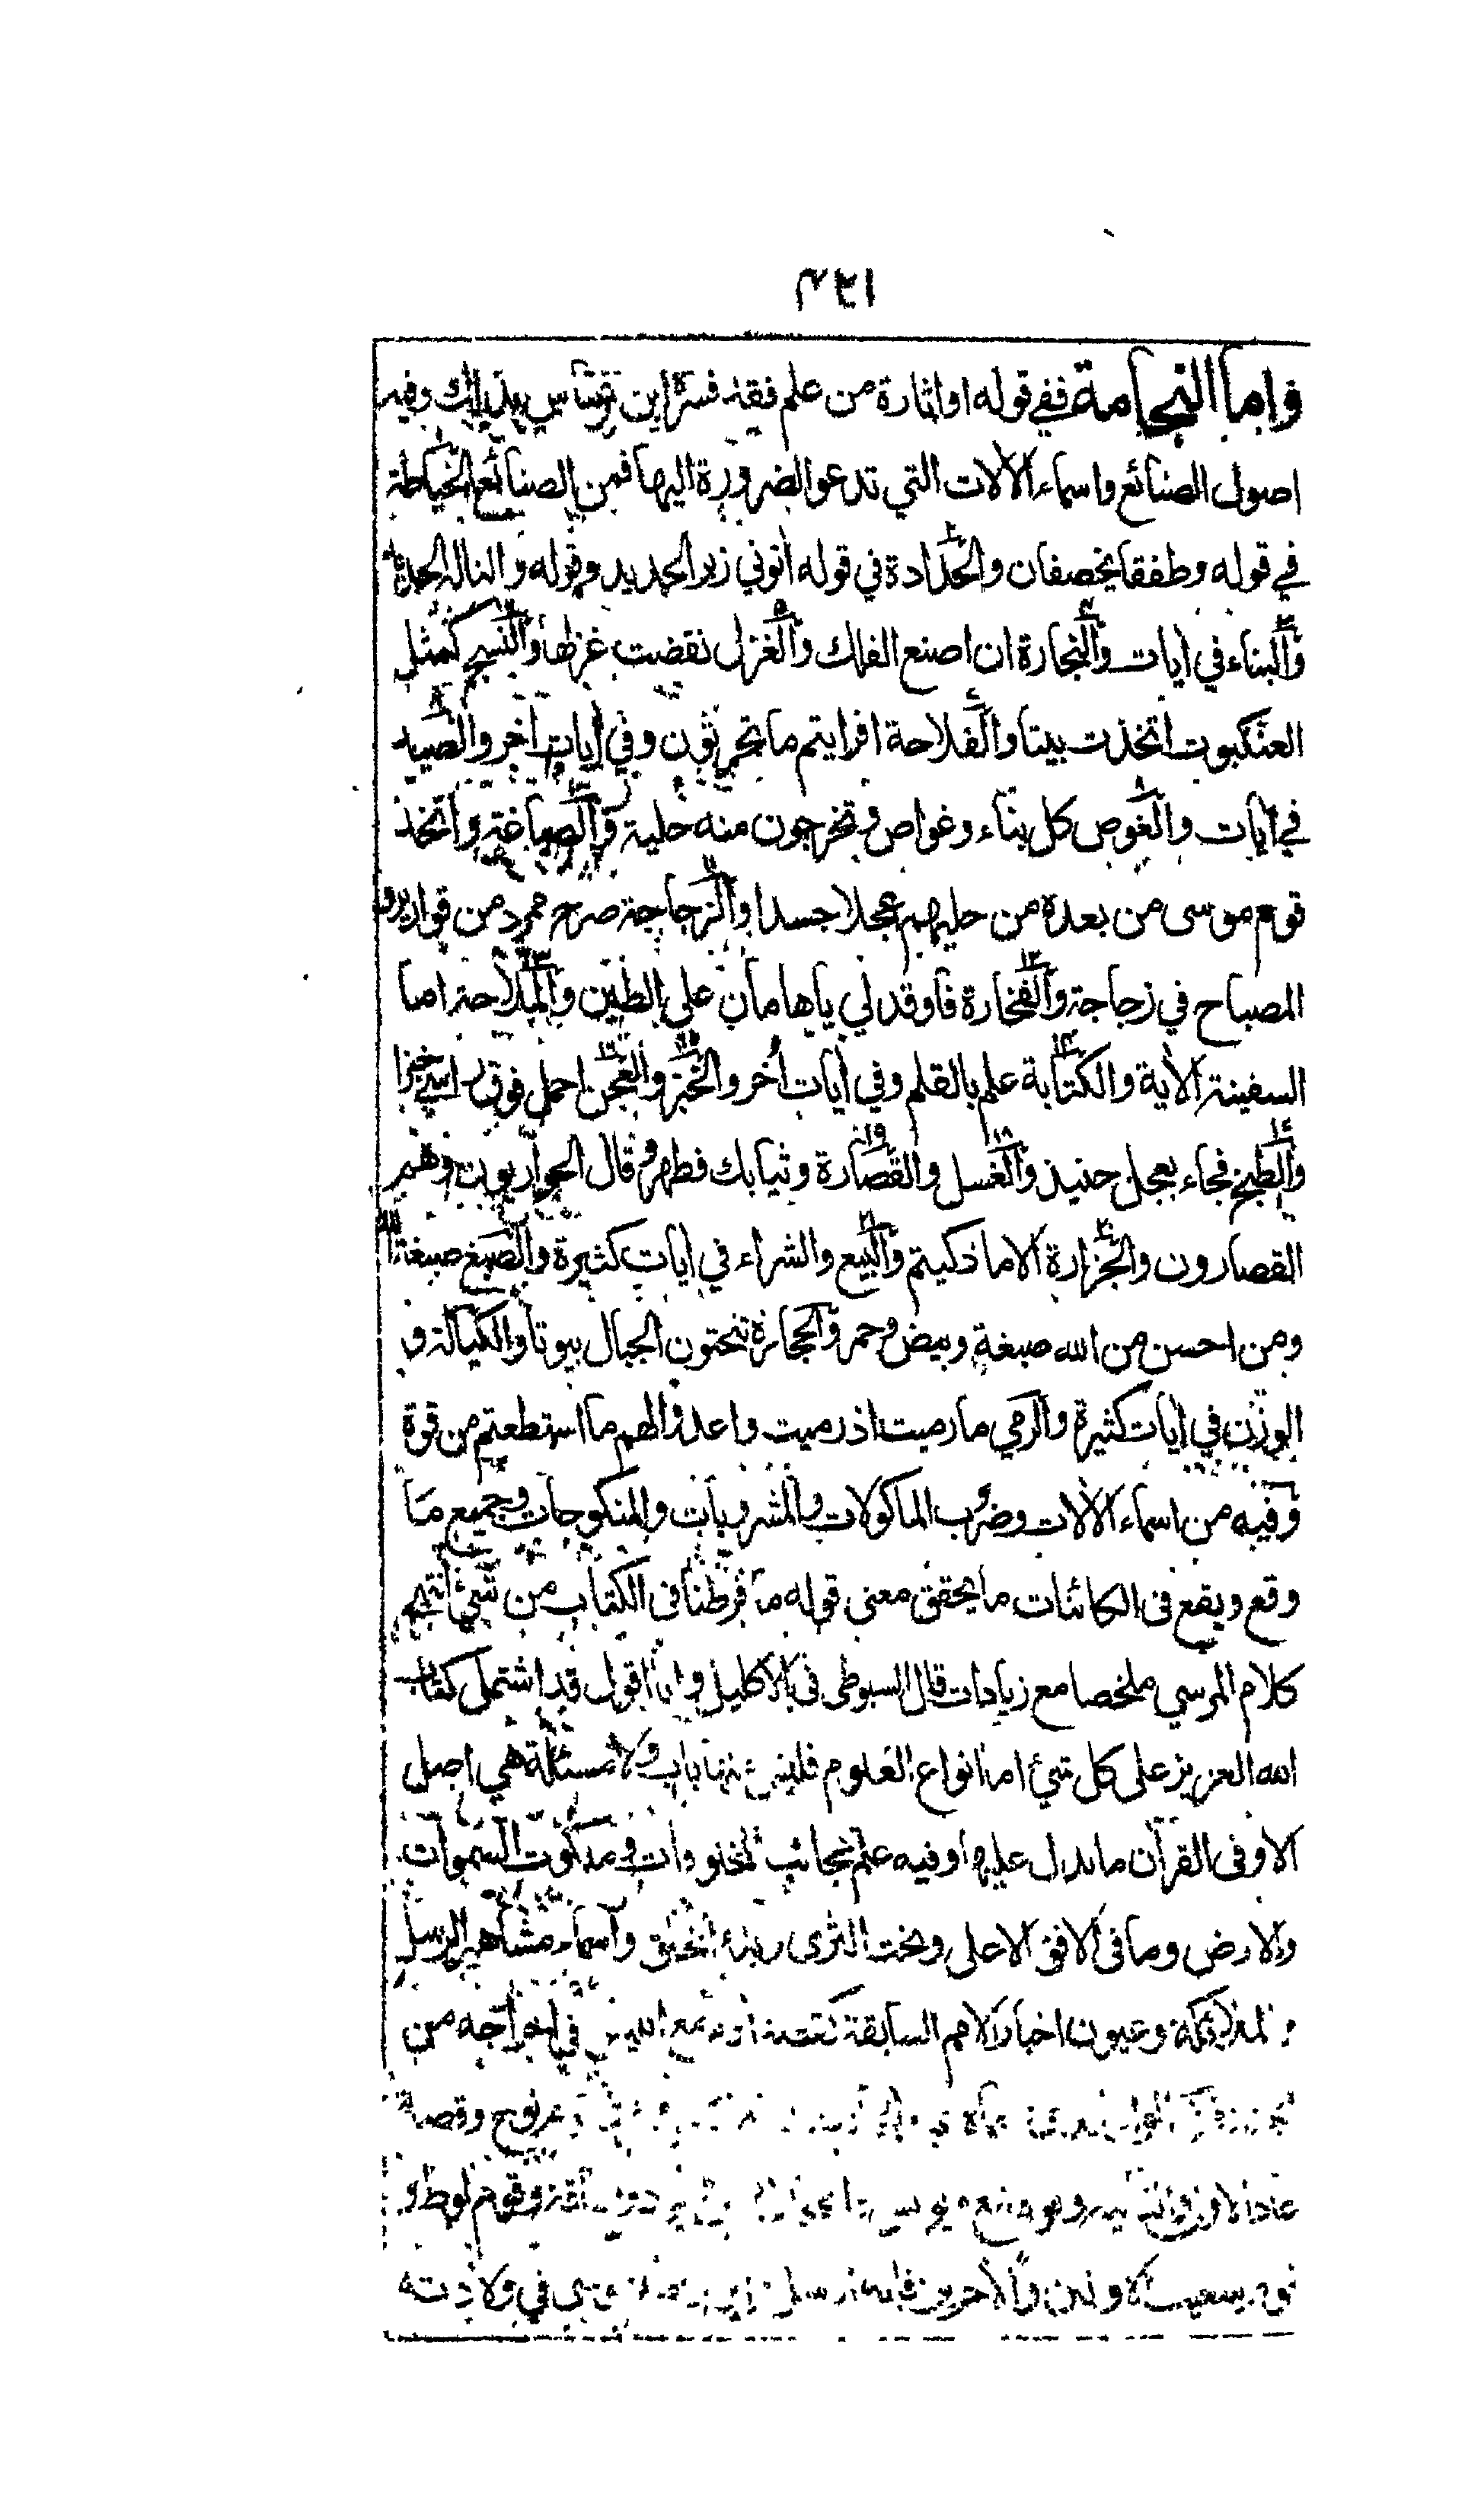 ٤٢١
واما النجامة ففي قوله او اثارة من علم فقد فسره ابن عباس بذلك وفيه
اصول الصنائع واسماء الآلات التي تدعو الضرورة اليها فمن الصنائع الخياطة
في قوله وطفقا يخصفان والحدادة في قوله اتوني زبر الحديد وقوله والناله الحديد
والبناء في ايات والنجارة ان اصنع الفلك والغزل نقضت غزلها والنسج كمثل
العنكبوت اتخذت بيتا والفلاحة افرايتم ما تحرثون وفي ايات اخر والصيد
في ايات والغوص كل بناء وغواص وتخرجون منه حلية والصياغة واتخذ
قوم موسى من بعده من حليهم عجلا جسدا والزجاجة صرح ممرد من قوارير و
المصباح في زجاجة والفخارة فاوقد لي ياهامان على الطين والملاحة اما
السفينة الاية والكتابة علم بالقلم وفي ايات أخر والخبز والعجن احمل فوق راسي خبزا
والطبخ فجاء بعجل حنيذ والغسل والقصارة وثيابك فطهر وقال الحواريون وهم
القصارون والجزارة الا ما ذكيتم والبيع والشراء في ايات كثيرة والصبغ صبغة الله
ومن احسن من الله صبغة وبيض وحمر والحجارة تنحتون الجبال بيوتا والكيالة و
الوزن في ايات كثيرة والرمي ما رميت اذ رميت واعدوا لهم ما استطعتم من قوة
وفيه من اسماء الآلات وضروب الماكولات والمشروبات والمنكوحات وجميع ما
وقع ويقع في الكائنات ما يحقق معنى قوله ما فرطنا في الكتاب من شيئ انتهى
كلام المرسي ملخصا مع زيادات قال السيوطي في الاكليل وانا اقول قد اشتمل كتاب
الله العزيز على كل شيء اما انواع العلوم فليس منها باب ولا مسئلة هي اصل
الا وفى القرآن ما يدل عليها وفيه علم عجائب المخلوقات وملكوت السموات
والارض وما في الافق الاعلى وتحت الثرى وبدء الخلق واسماء مشاهير الرسل
والملائكة وعيون اخبار الامم السابقة كقصة ادم مع ابليس في اخراجه من
نوح وقصة
عاد الاولى والثانية وقوم لوط و
قوم شعيب الاولين والاخرين فانه ارسل في ولادته